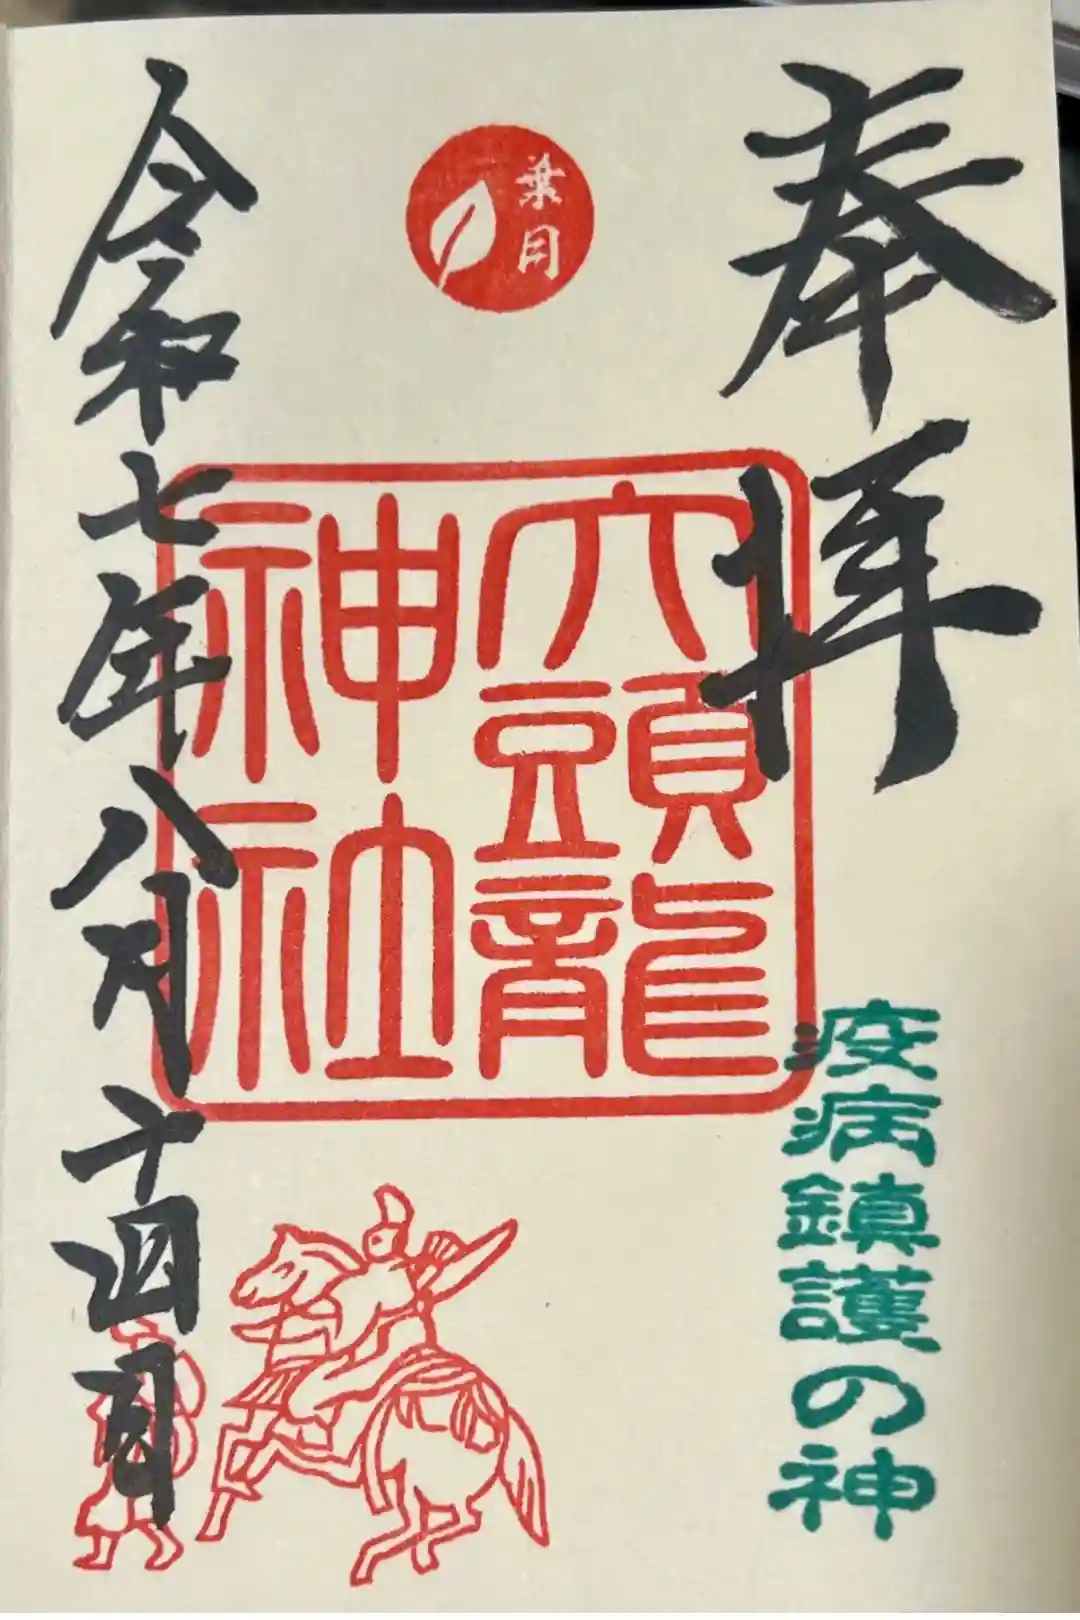 奉拝
疫病鎮護の神
葉月
大頭龍
神社
令和七年八月十四日